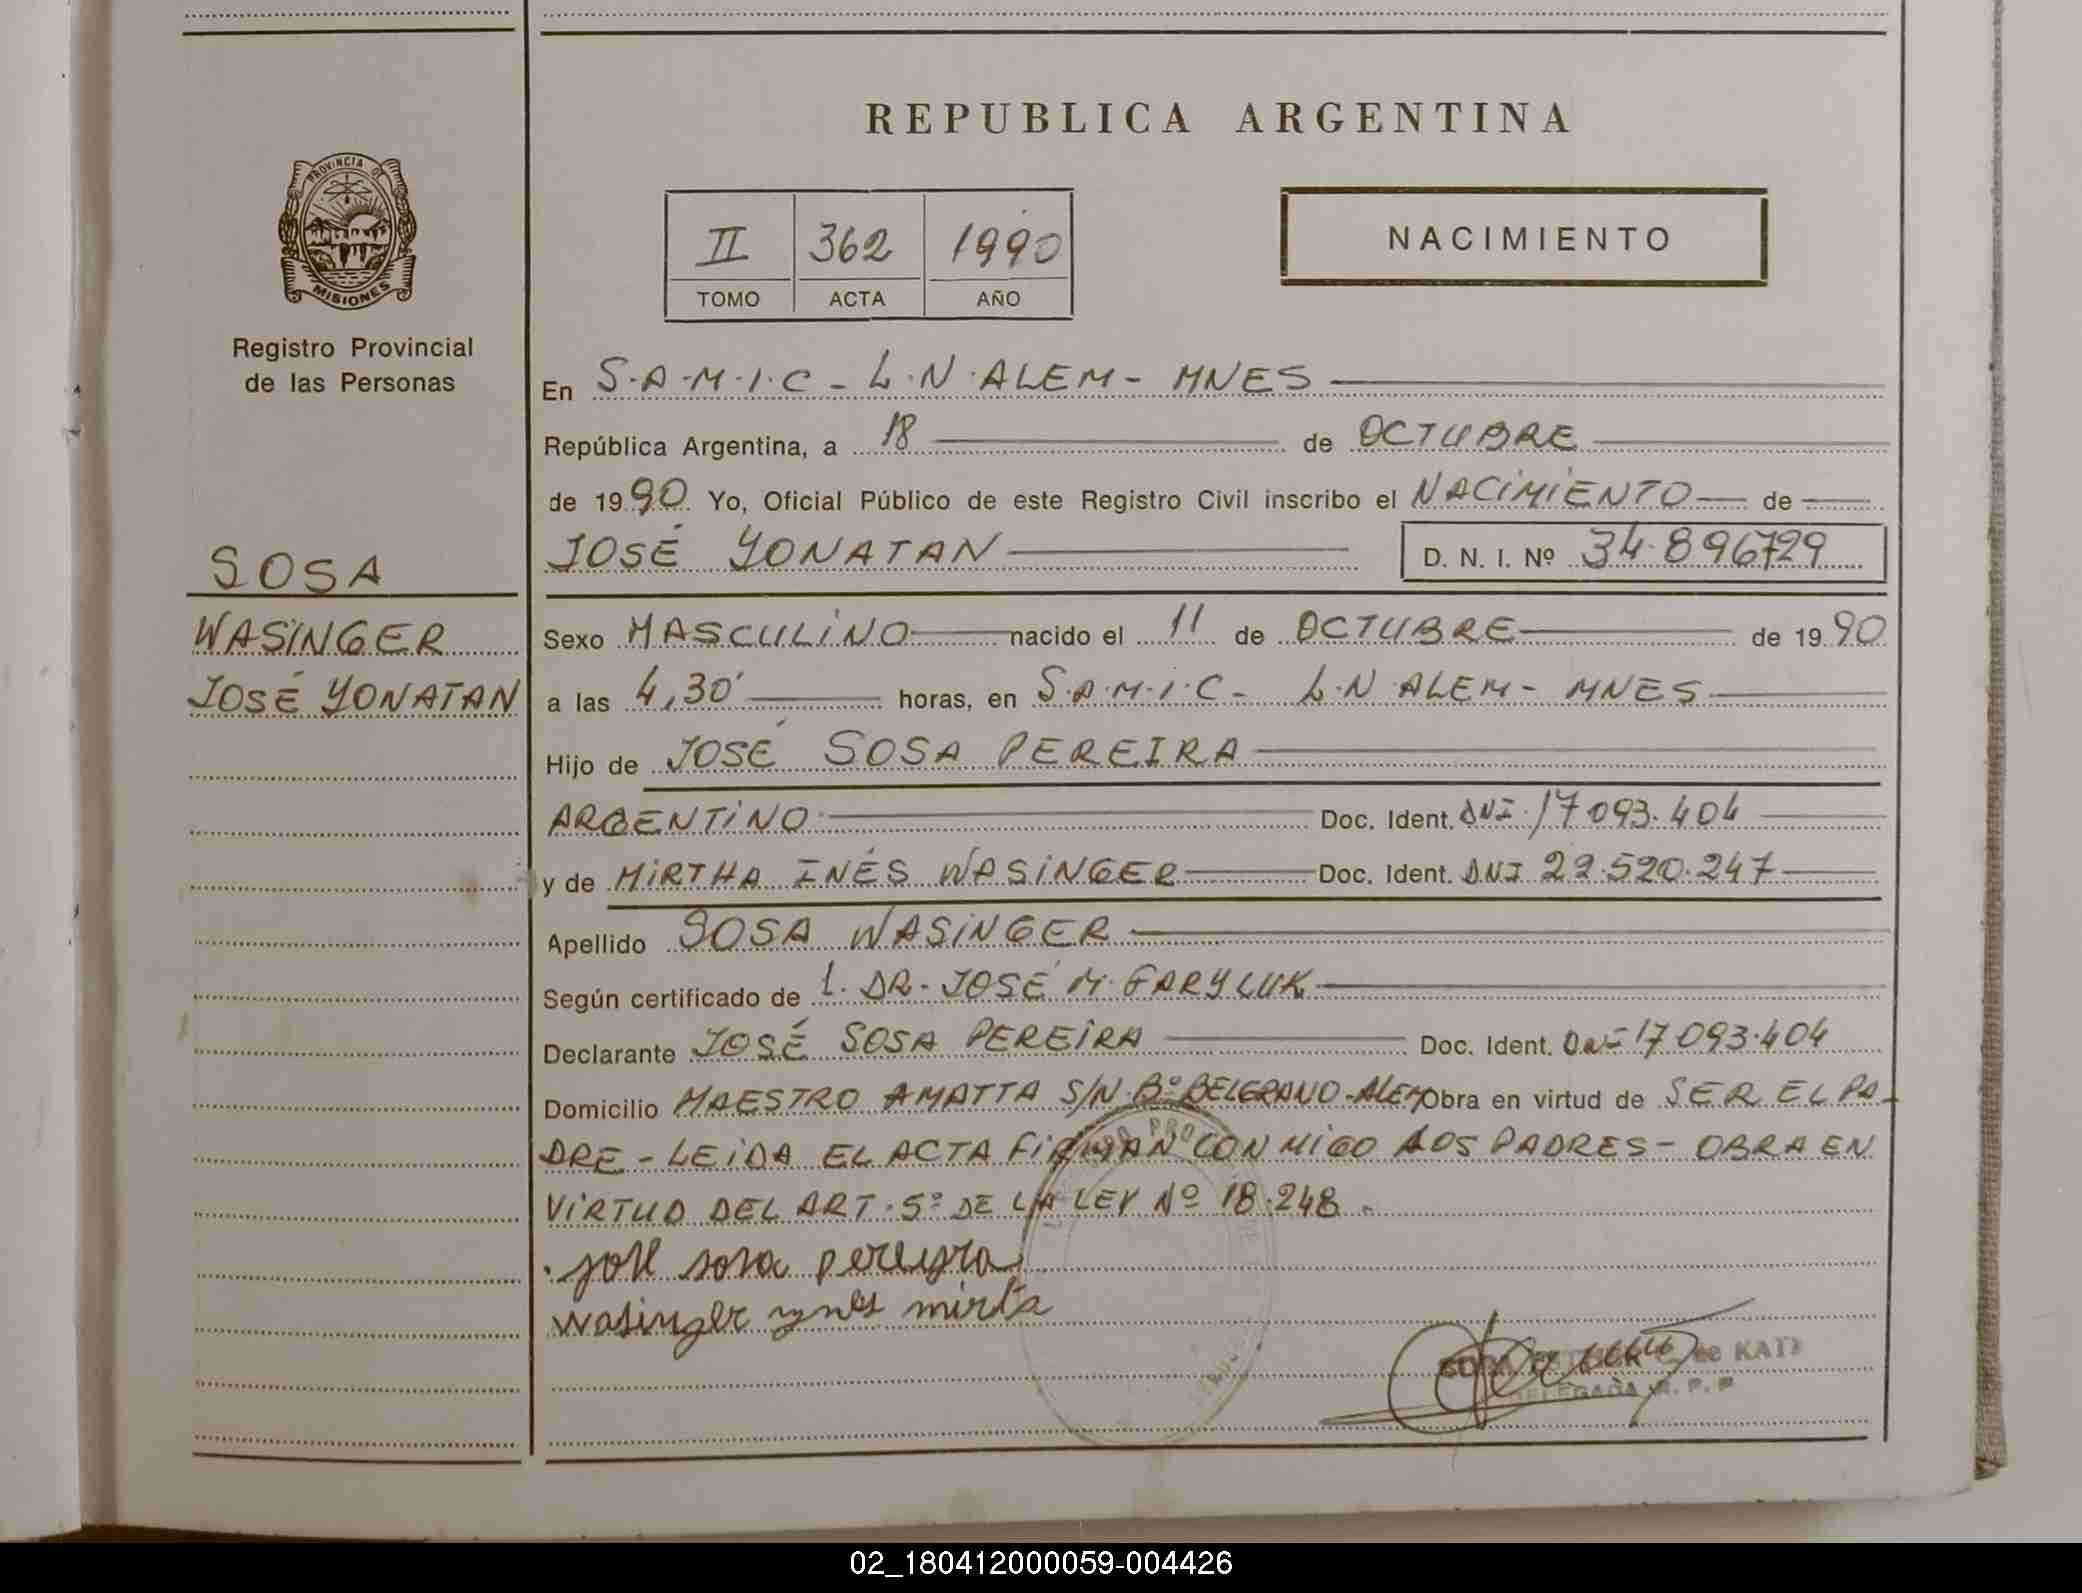 REPUBLICA ARGENTINA
PROVINCIA DE
MISIONES
Registro Provincial
de las Personas
II 362 1990
TOMO ACTA AÑO
NACIMIENTO
SOSA
WASINGER
JOSÉ YONATAN
En S.A.M.I.C - L.N.ALEM - MNES
República Argentina, a 18 de OCTUBRE
de 1990 Yo, Oficial Público de este Registro Civil inscribo el NACIMIENTO de
JOSÉ YONATAN D. N. I. Nº 34.896729
Sexo MASCULINO nacido el 11 de OCTUBRE de 1990
a las 4,30' horas, en S.A.M.I.C - L.N ALEM - MNES
Hijo de JOSÉ SOSA PEREIRA
ARGENTINO Doc. Ident. DNI 17093.404
y de MIRTHA INÉS WASINGER Doc. Ident. DNI 22.520.247
Apellido SOSA WASINGER
Según certificado de L. DR. JOSÉ M. GARYLUK
Declarante JOSÉ SOSA PEREIRA Doc. Ident. DNI 17093.404
Domicilio MAESTRO AMATTA S/N Bº BELGRANO-ALEM Obra en virtud de SER EL PA-
DRE - LEIDA EL ACTA FIRMAN CONMIGO LOS PADRES - OBRA EN
VIRTUD DEL ART. 5º DE LA LEY Nº 18.248.
José sosa pereyra
wasinger ynes mirta
de KAD
DELEGADA R. P. P
02_180412000059-004426